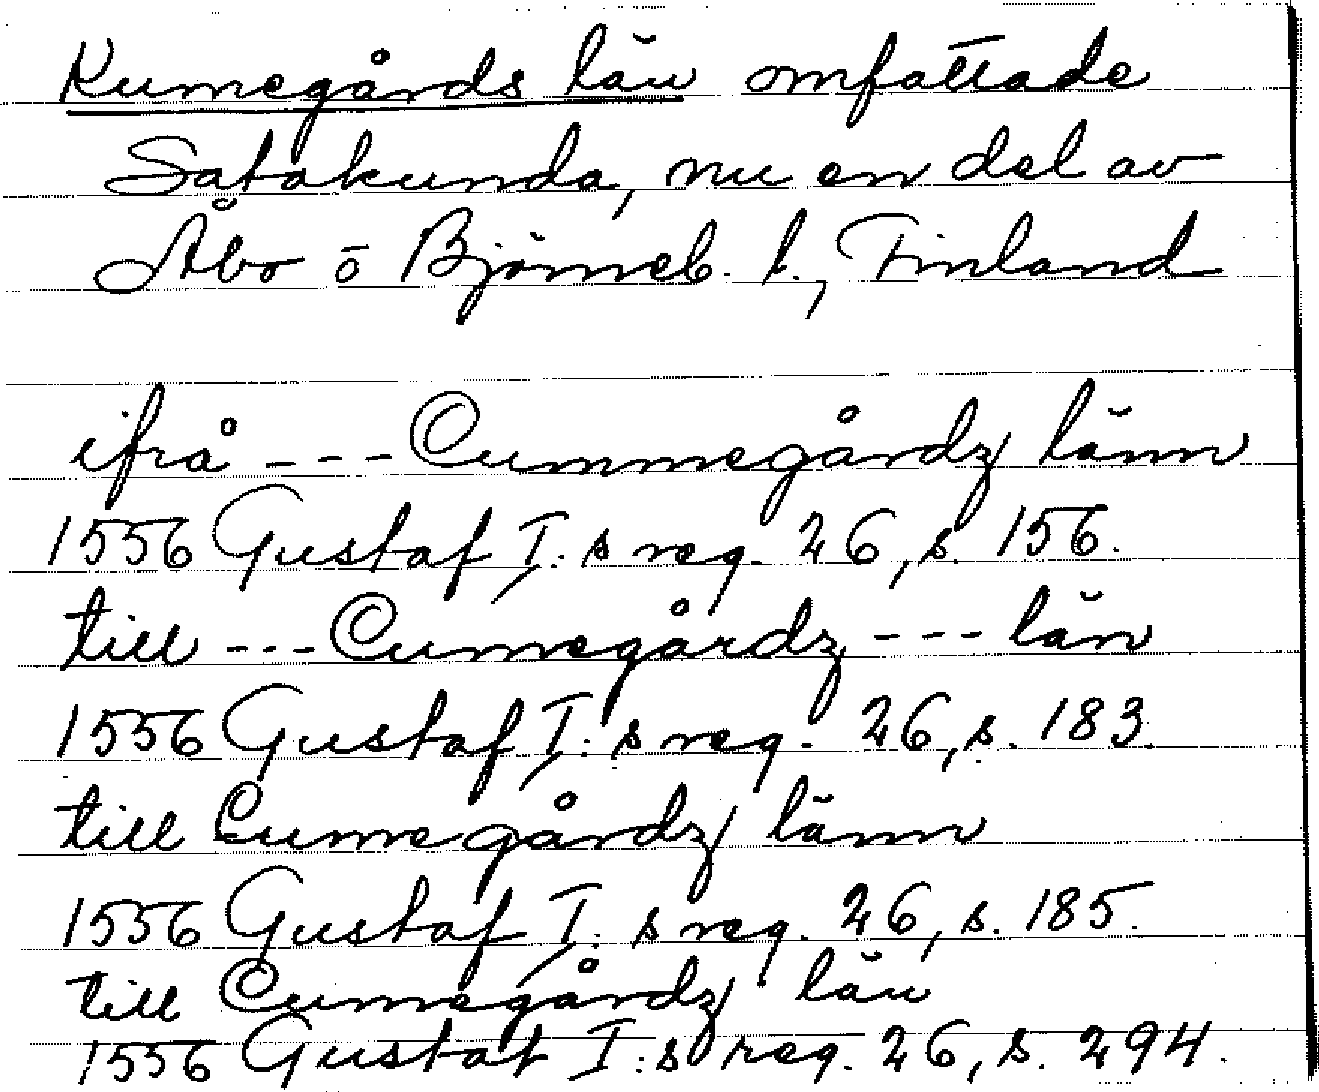 Kumegårds län omfattade
Satakunda, nu en del av
Åbo o Björneb. l., Finland
ifrå --- Cummegårdz länn
1556 Gustaf I:s reg. 26, s. 156.
till --- Cumegårdz --- län
1556 Gustaf I:s reg. 26, s. 183.
till Cumegårdz länn
1556 Gustaf I:s reg. 26, s. 185.
till Cumegårdz län
1556 Gustaf I:s reg. 26, s. 294.